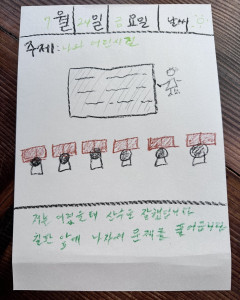 9월 24일 금요일 날씨
주제: 나의 어린시절
저는 어렸을때 산수를 잘했습니다
칠판 앞에 나가서 문제를 풀어